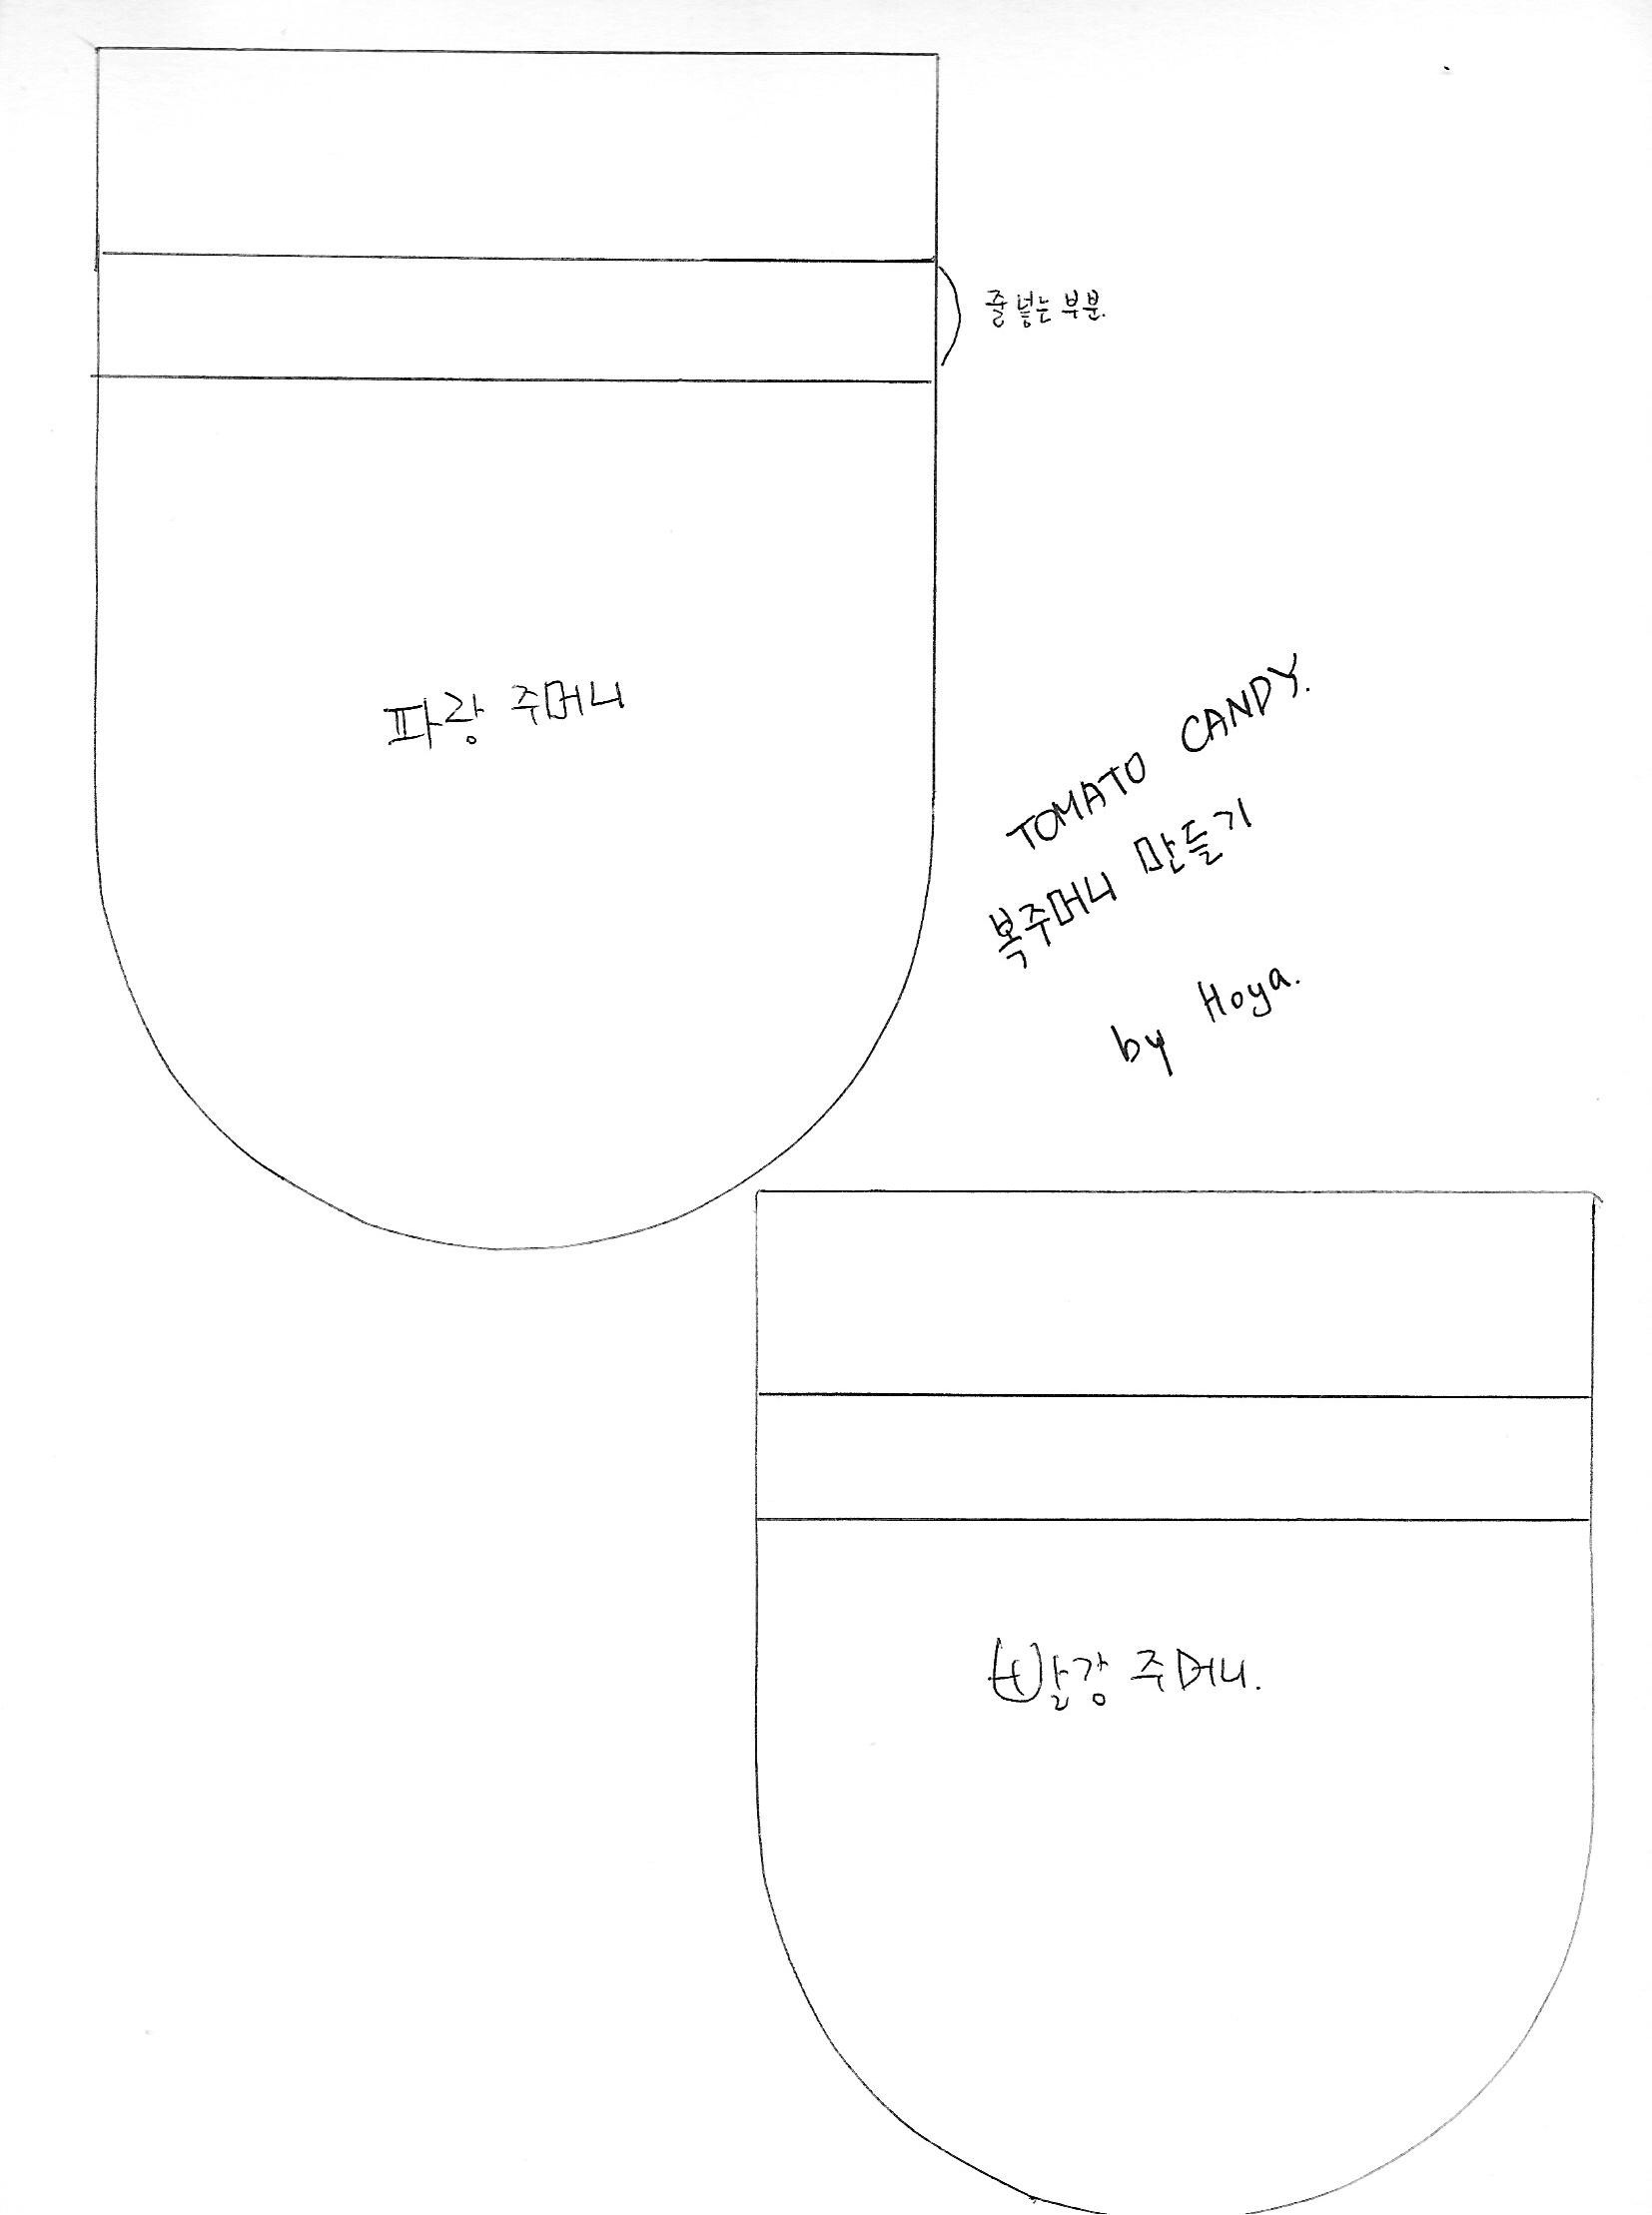 줄 넣는 부분.
파랑 주머니
TOMATO CANDY.
복주머니 만들기
by Hoya.
빨강 주머니.